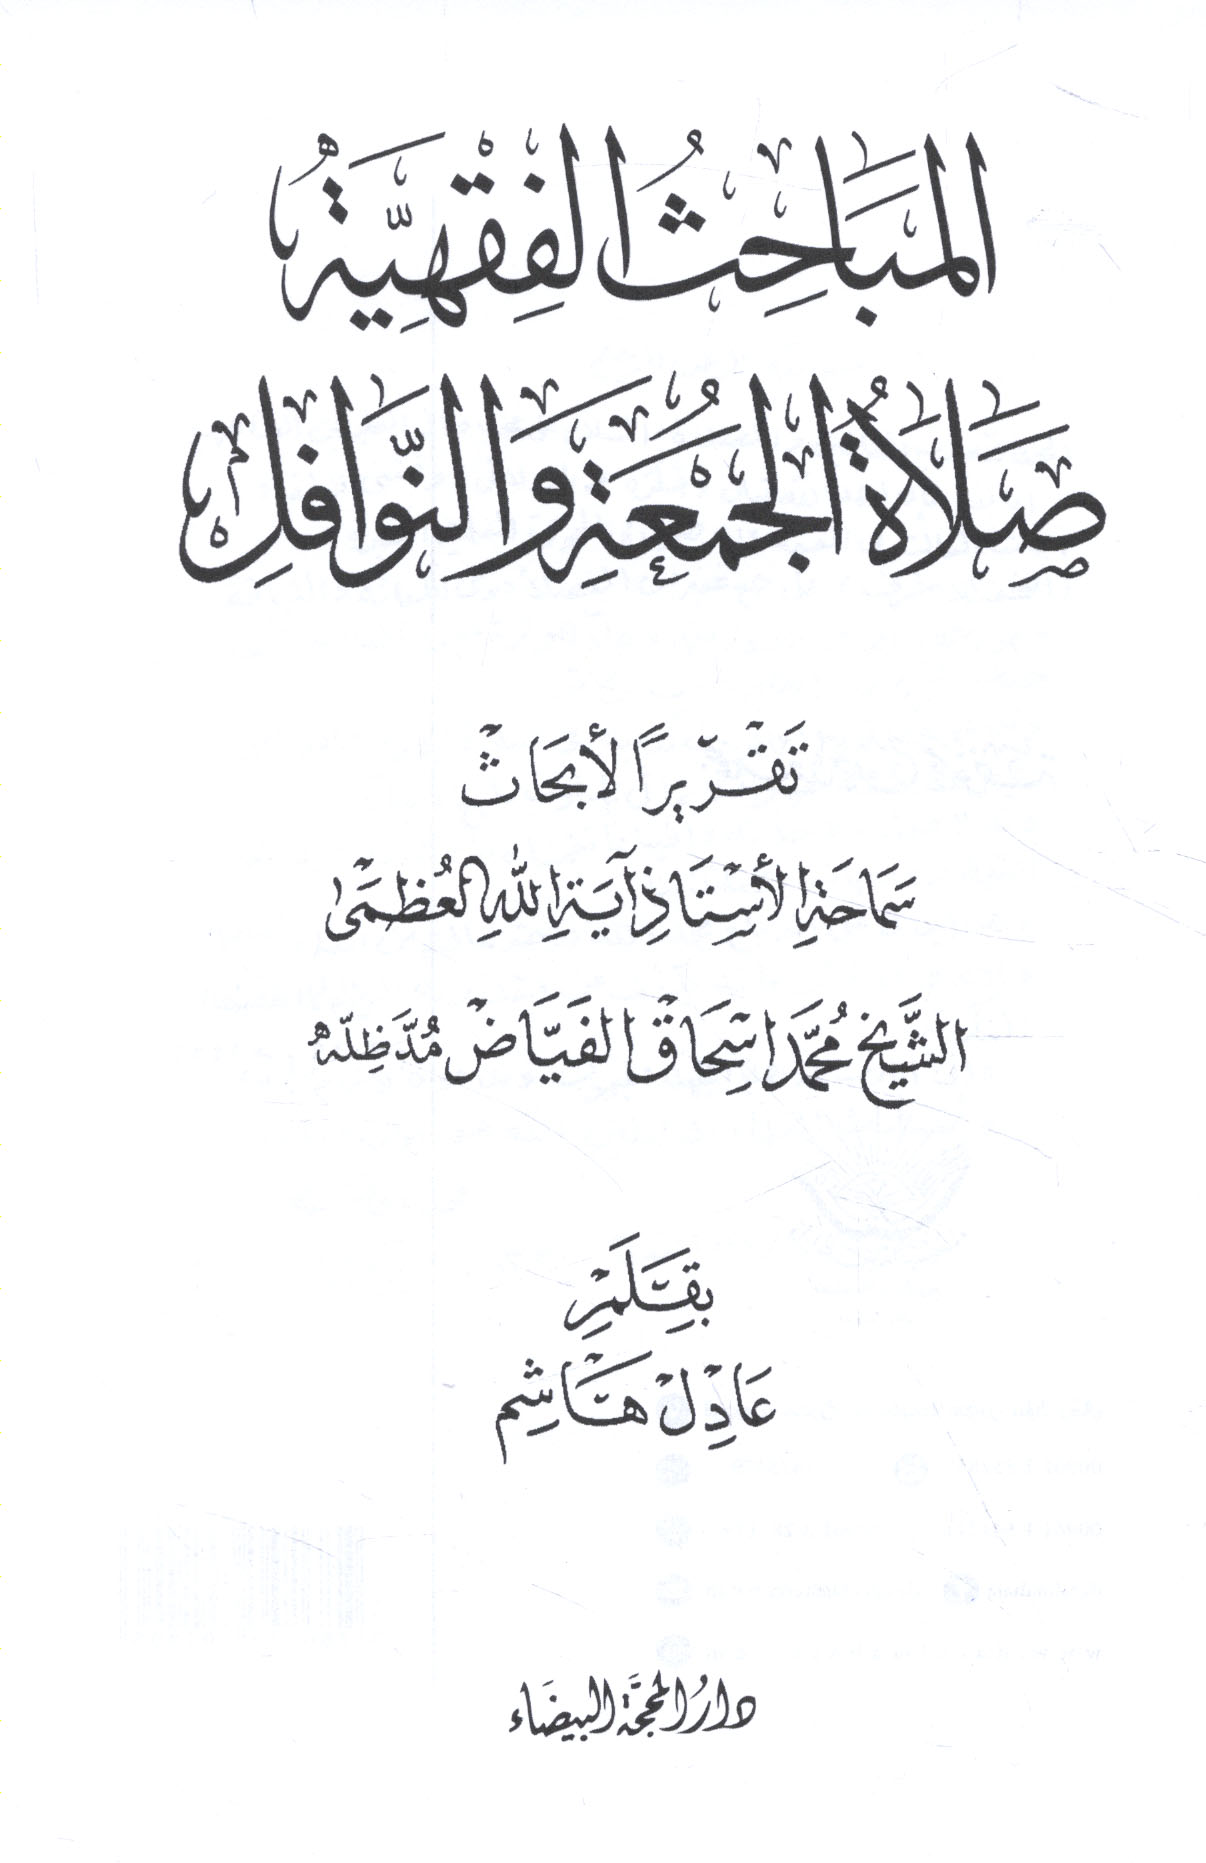 المَبَاحِثُ الفِقْهِيَّةُ
صَلَاةُ الجُمُعَةِ وَالنَّوَافِلِ
تَقْرِيرًا لأَبحَاث
سَمَاحَةِ الأُسْتَاذِ آيَةِ اللهِ العُظمَى
الشَّيْخ مُحَمَّد اسْحَاق الفَيَّاض مُدَّ ظِلّهُ
بِقَلَمِ
عَادِل هَاشِم
دَارُ المَحَجَّةِ البَيضَاء